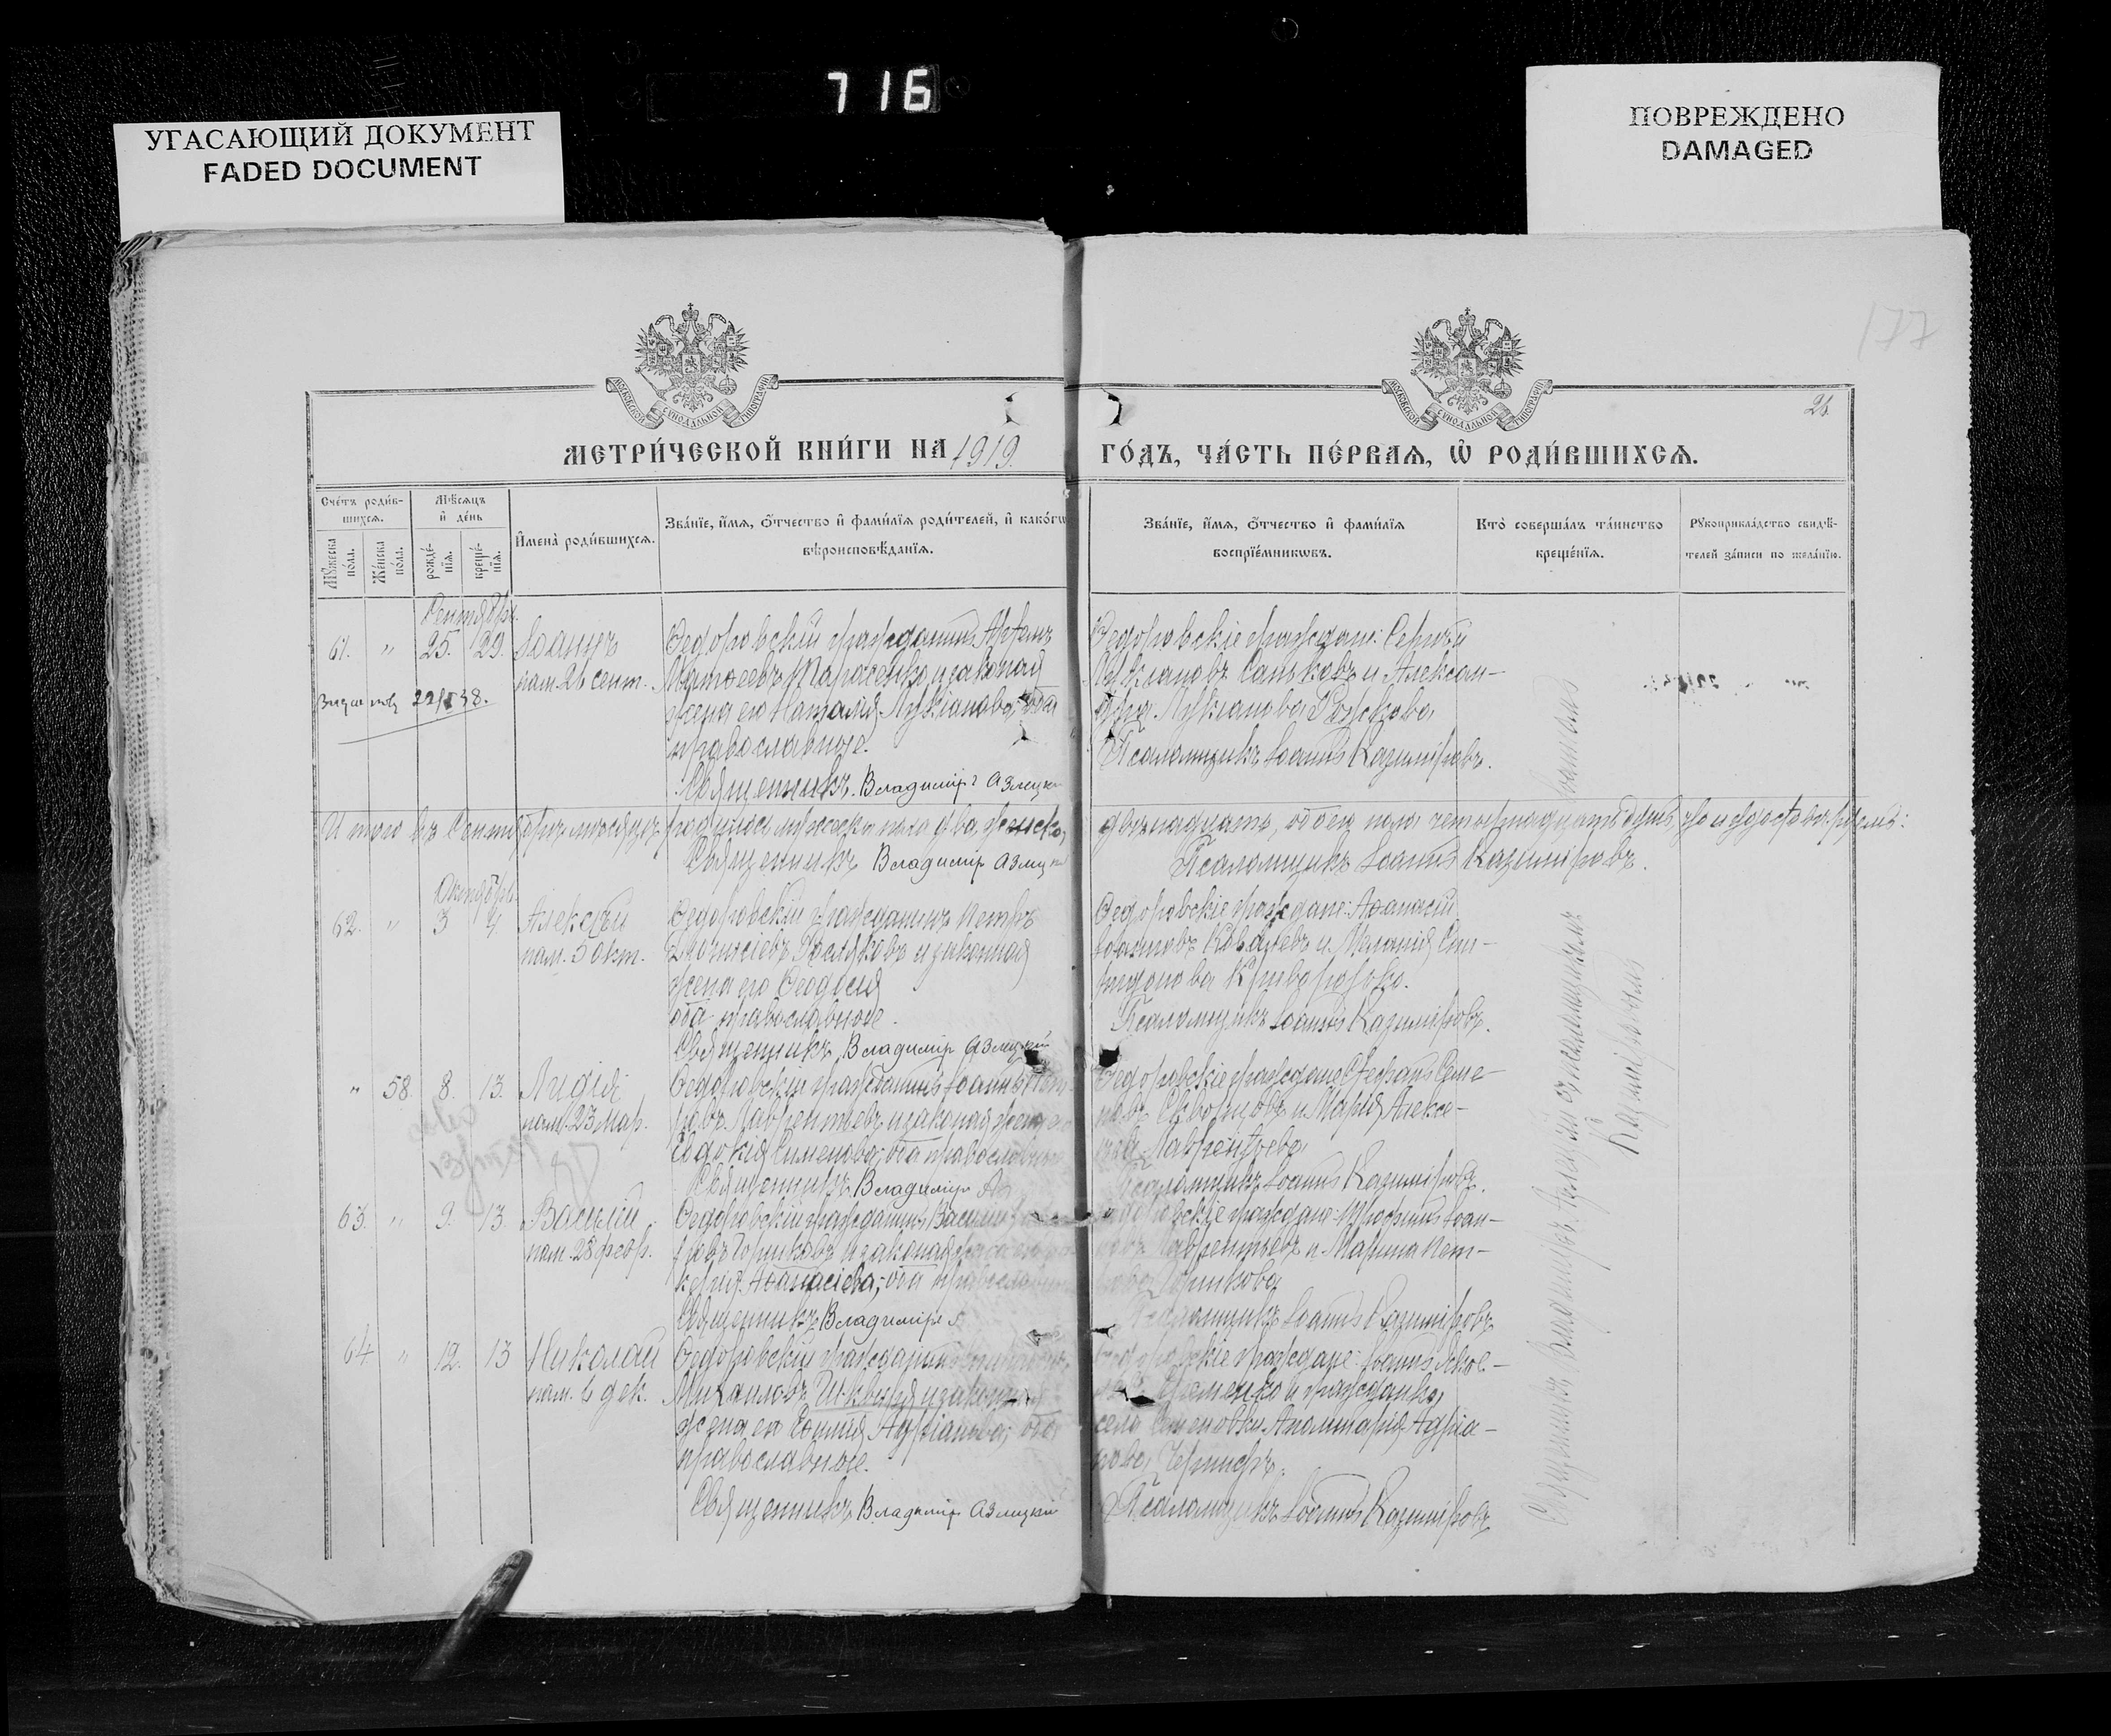 716
УГАСАЮЩИЙ ДОКУМЕНТ
FADED DOCUMENT
ПОВРЕЖДЕНО
DAMAGED
177
МОСКОВСКОЙ СУНОДАЛЬНОЙ ТИПОГРАФІИ
МОСКОВСКОЙ СУНОДАЛЬНОЙ ТИПОГРАФІИ
26.
МЕТРИ́ЧЕСКОЙ КНИ́ГИ НА 1919.
ГО́ДЪ, ЧА́СТЬ ПЕ́РВАѦ, Ѡ҆ РОДИ́ВШИХСѦ.
Сче́тъ роди́вшихсѧ.
Мꙋ́жеска по́ла.
Же́нска по́ла.
Мѣ́сѧцъ и҆ де́нь
рожде́нїѧ.
креще́нїѧ.
И҆мена̀ роди́вшихсѧ.
Зва́нїе, и҆́мѧ, ѻ҆́тчество и҆ фами́лїѧ роди́телей, и҆ како́гѡ
вѣроисповѣ́данїѧ.
Зва́нїе, и҆́мѧ, ѻ҆́тчество и҆ фами́лїѧ
воспрїе́мникѡвъ.
Кто̀ соверша́лъ та́инство
креще́нїѧ.
Рꙋкоприкла́дство свидѣ́-
телей за́писи по жела́нїю.
Сентябрь.
61. " 25. 29. Іоаннъ
пам. 26 сент.
22/I 38.
Федоровскій гражданинъ
Матѳеевъ Тарасенко и законная
жена его Наталія Лукіанова; оба
православные.
Священникъ Владиміръ Азлецкій
Федоровскіе граждане: Сергѣй
Лукіановъ Саньковъ и Алексан-
дра Лукіанова
Псаломщикъ Іоаннъ Казиміровъ.
И того въ Сентябрѣ мѣсяцѣ родилось мужска пола два, женска
двѣнадцать, обоего пола четырнадцать
Священникъ Владиміръ Азлецкій
Псаломщикъ Іоаннъ Казиміровъ.
Октябрь
62. " 3 4. Алексѣй
пам. 5 окт.
Федоровскій гражданинъ Петръ
Діонисіевъ и законная
жена его Феодосія
оба православные.
Священникъ Владиміръ Азлецкій
Федоровскіе граждане: Аѳанасій
Іоанновъ и Меланія Спи-
ридонова Криворотова.
Псаломщикъ Іоаннъ Казиміровъ.
" 58. 8. 13. Лидія
пам. 23 мар.
Федоровскій гражданинъ Іоаннъ Пет-
ровъ Лаврентьевъ и законная жена его
Евдокія Симонова; оба православные
Священникъ Владиміръ Аз
Федоровскіе граждане Стефанъ Семе-
новъ Скворцовъ и Марія Алексе-
ева Лаврентьева
Псаломщикъ Іоаннъ Казиміровъ.
63. " 9. 13. Василій
пам. 28 февр.
Федоровскій гражданинъ Василій
ровъ Горшковъ и законная жена его
Аѳанасіева; оба православные
Священникъ Владиміръ А
Федоровскіе граждане: Трофимъ Іоан-
новъ Лаврентьевъ и Марина Пет-
рова Горшкова
Псаломщикъ Іоаннъ Казиміровъ
64 " 12. 13 Николай
пам. 6 дек.
Федоровскій гражданинъ
Михаиловъ и законная
жена его Адріанова; оба
православные.
Священникъ Владиміръ Азлецкій
Федоровскіе граждане: Іоаннъ
и гражданка
села Семеновки Аполинарія Адріа-
нова
Псаломщикъ Іоаннъ Казиміровъ
Священникъ Владиміръ Азлецкій съ псаломщикомъ
Казиміровымъ